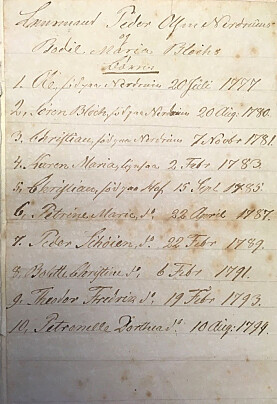 Lieutnant Peder Olsen Nordrums
og
Bodil Maria Blochs
Børn
1. Ole, født paa Nordrum 20 Juli 1777
2. Søren Bloch, født paa Nordrum 20 Aug. 1780.
3. Christian, født paa Nordrum 7 Novbr 1781.
4. Karen Maria, 2 Febr 1783
5. Christian, født paa Hof 15 Sept. 1785.
6. Petrine Marie, do 22 April 1787.
7. Peder Schöien, do 22 Febr 1789.
8. Bolette Christine do, 6 Febr 1791.
9. Theodor Fredrik do, 19 Febr 1793.
10. Petronelle Dorthea do. 10 Aug. 1794.